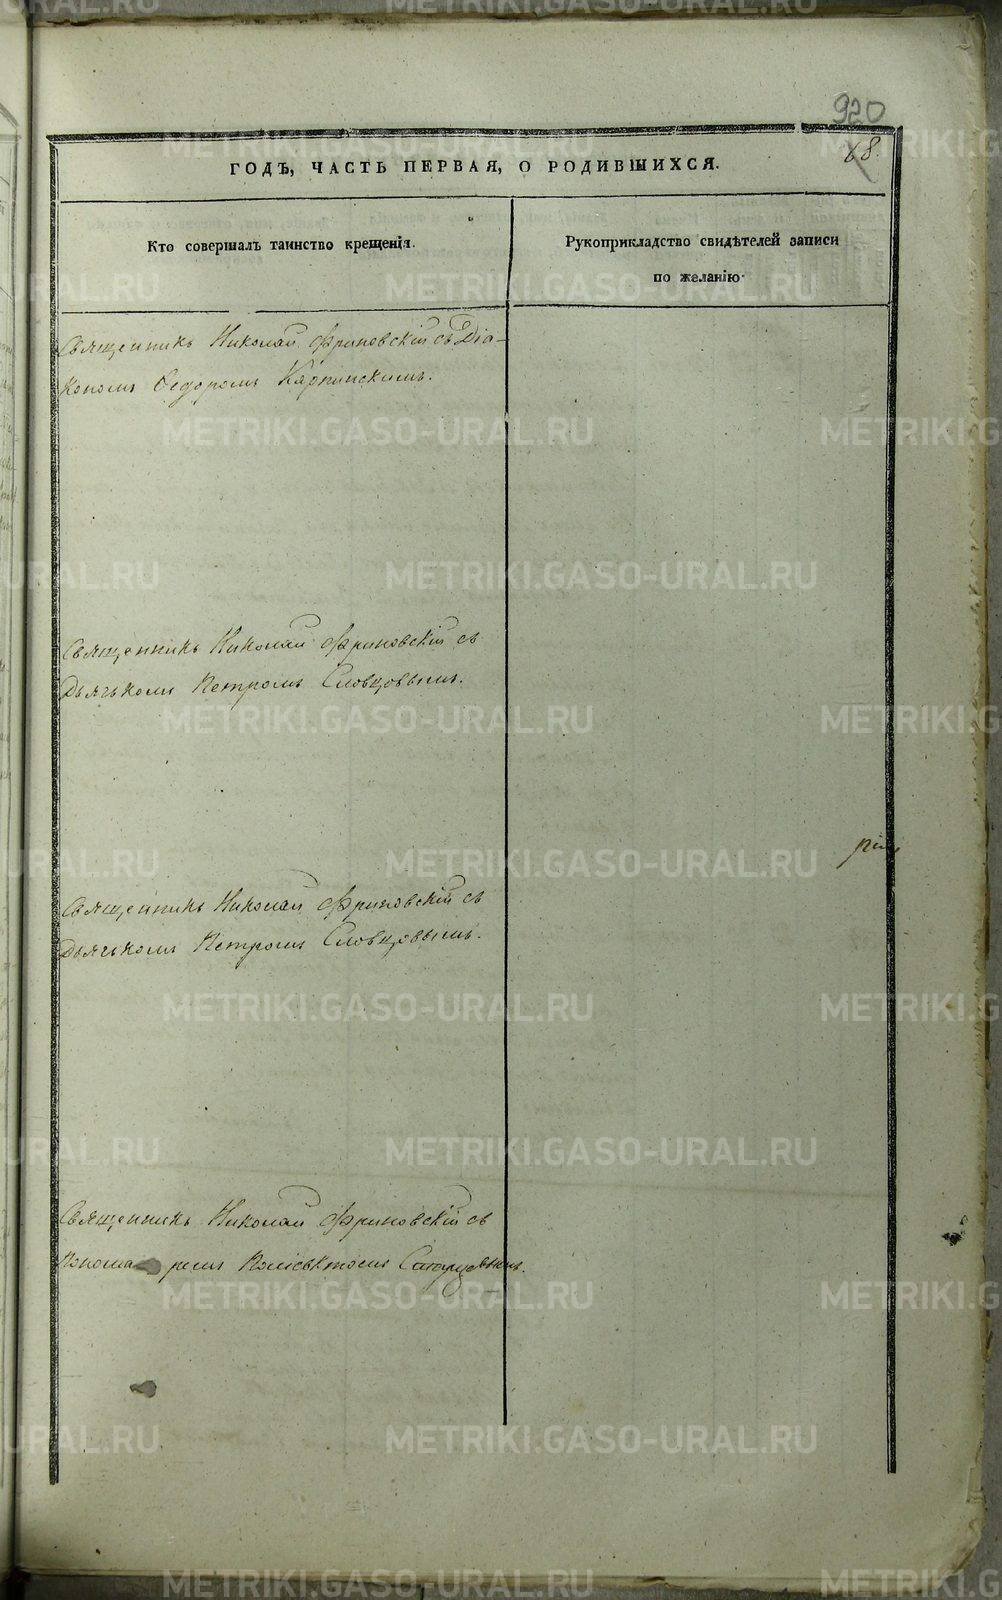 920
68.
ГОДЪ, ЧАСТЬ ПЕРВАЯ, О РОДИВШИХСЯ.
Кто совершалъ таинство крещенія.
Рукоприкладство свидѣтелей записи
по желанію
Священникъ Николай Фриновскій съ Діа-
кономъ Ѳедоромъ Карпинскимъ.
Священникъ Николай Фриновскій съ
Дьячькомъ Петромъ Словцовымъ.
Священникъ Николай Фриновскій съ
Дьячькомъ Петромъ Словцовымъ.
Священникъ Николай Фриновскій съ
Пономаремъ
METRIKI.GASO-URAL.RU